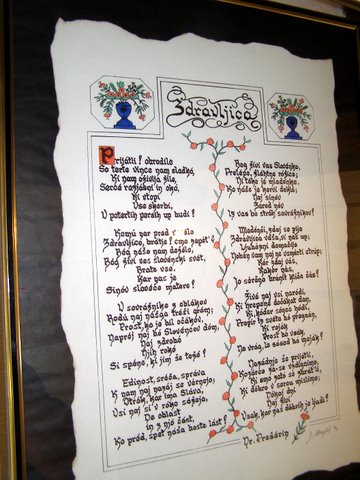 Zdravljica
Prijatli! obrodile
So trte vince nam sladkó,
Ki nam oživlja žile,
Sercé razjásni in okó,
Ki utopi
Vse skerbi,
V potertih persih up budi!
Komú nar pred veselo
Zdravljico, bratje! čmo zapét'!
Bóg našo nam deželo,
Bóg živi ves slovenski svét,
Brate vse,
Kar nas je
Sinóv slovéče matere!
V sovražnike z oblakov
Rodú naj naš'ga tréši gróm;
Prost, ko je bil očákov,
Naprej naj bó Slovéncov dóm;
Naj zdrobé
Njih roké
Si spóne, ki jim še težé!
Edinost, sréča, správa
K nam naj nazaj se vernejo;
Otrók, kar ima Sláva,
Vsi naj si v róke sežejo,
De oblast
in z njó čast,
Ko préd, spet naša boste last!
Bog živi vas Slovénke,
Prelépe, žlahtne róžice;
Ni take je mladénke,
Ko naše je kervi dekle;
Naj sinóv
Zarod nov
Iz vas bo strah sovražnikov!
Mladenči, zdaj se pije
Zdravljica váša, vi naš up;
Ljubezni domačije
Nobèn vam naj ne vsmerti strup;
Ker zdaj vàs,
Kakor nàs,
Jo sérčno branit kliče čàs!
Živé naj vsi naródi,
Ki hrepené dočakat dan,
Ki, kóder sónce hódi,
Prepir iz svéta bó pregnan,
Ki rojak
Prost bó vsak,
Ne vrag, le sosed bó mejak!
Nazádnje še prijatli,
Kozarce zase vzdignimo,
Ki smo zató se zbrat'li,
Ki dobro v sercu mislimo;
Dókaj dni
Naj živí
Vsak, kar nas dóbrih je ljudi!
Dr. Prešérin